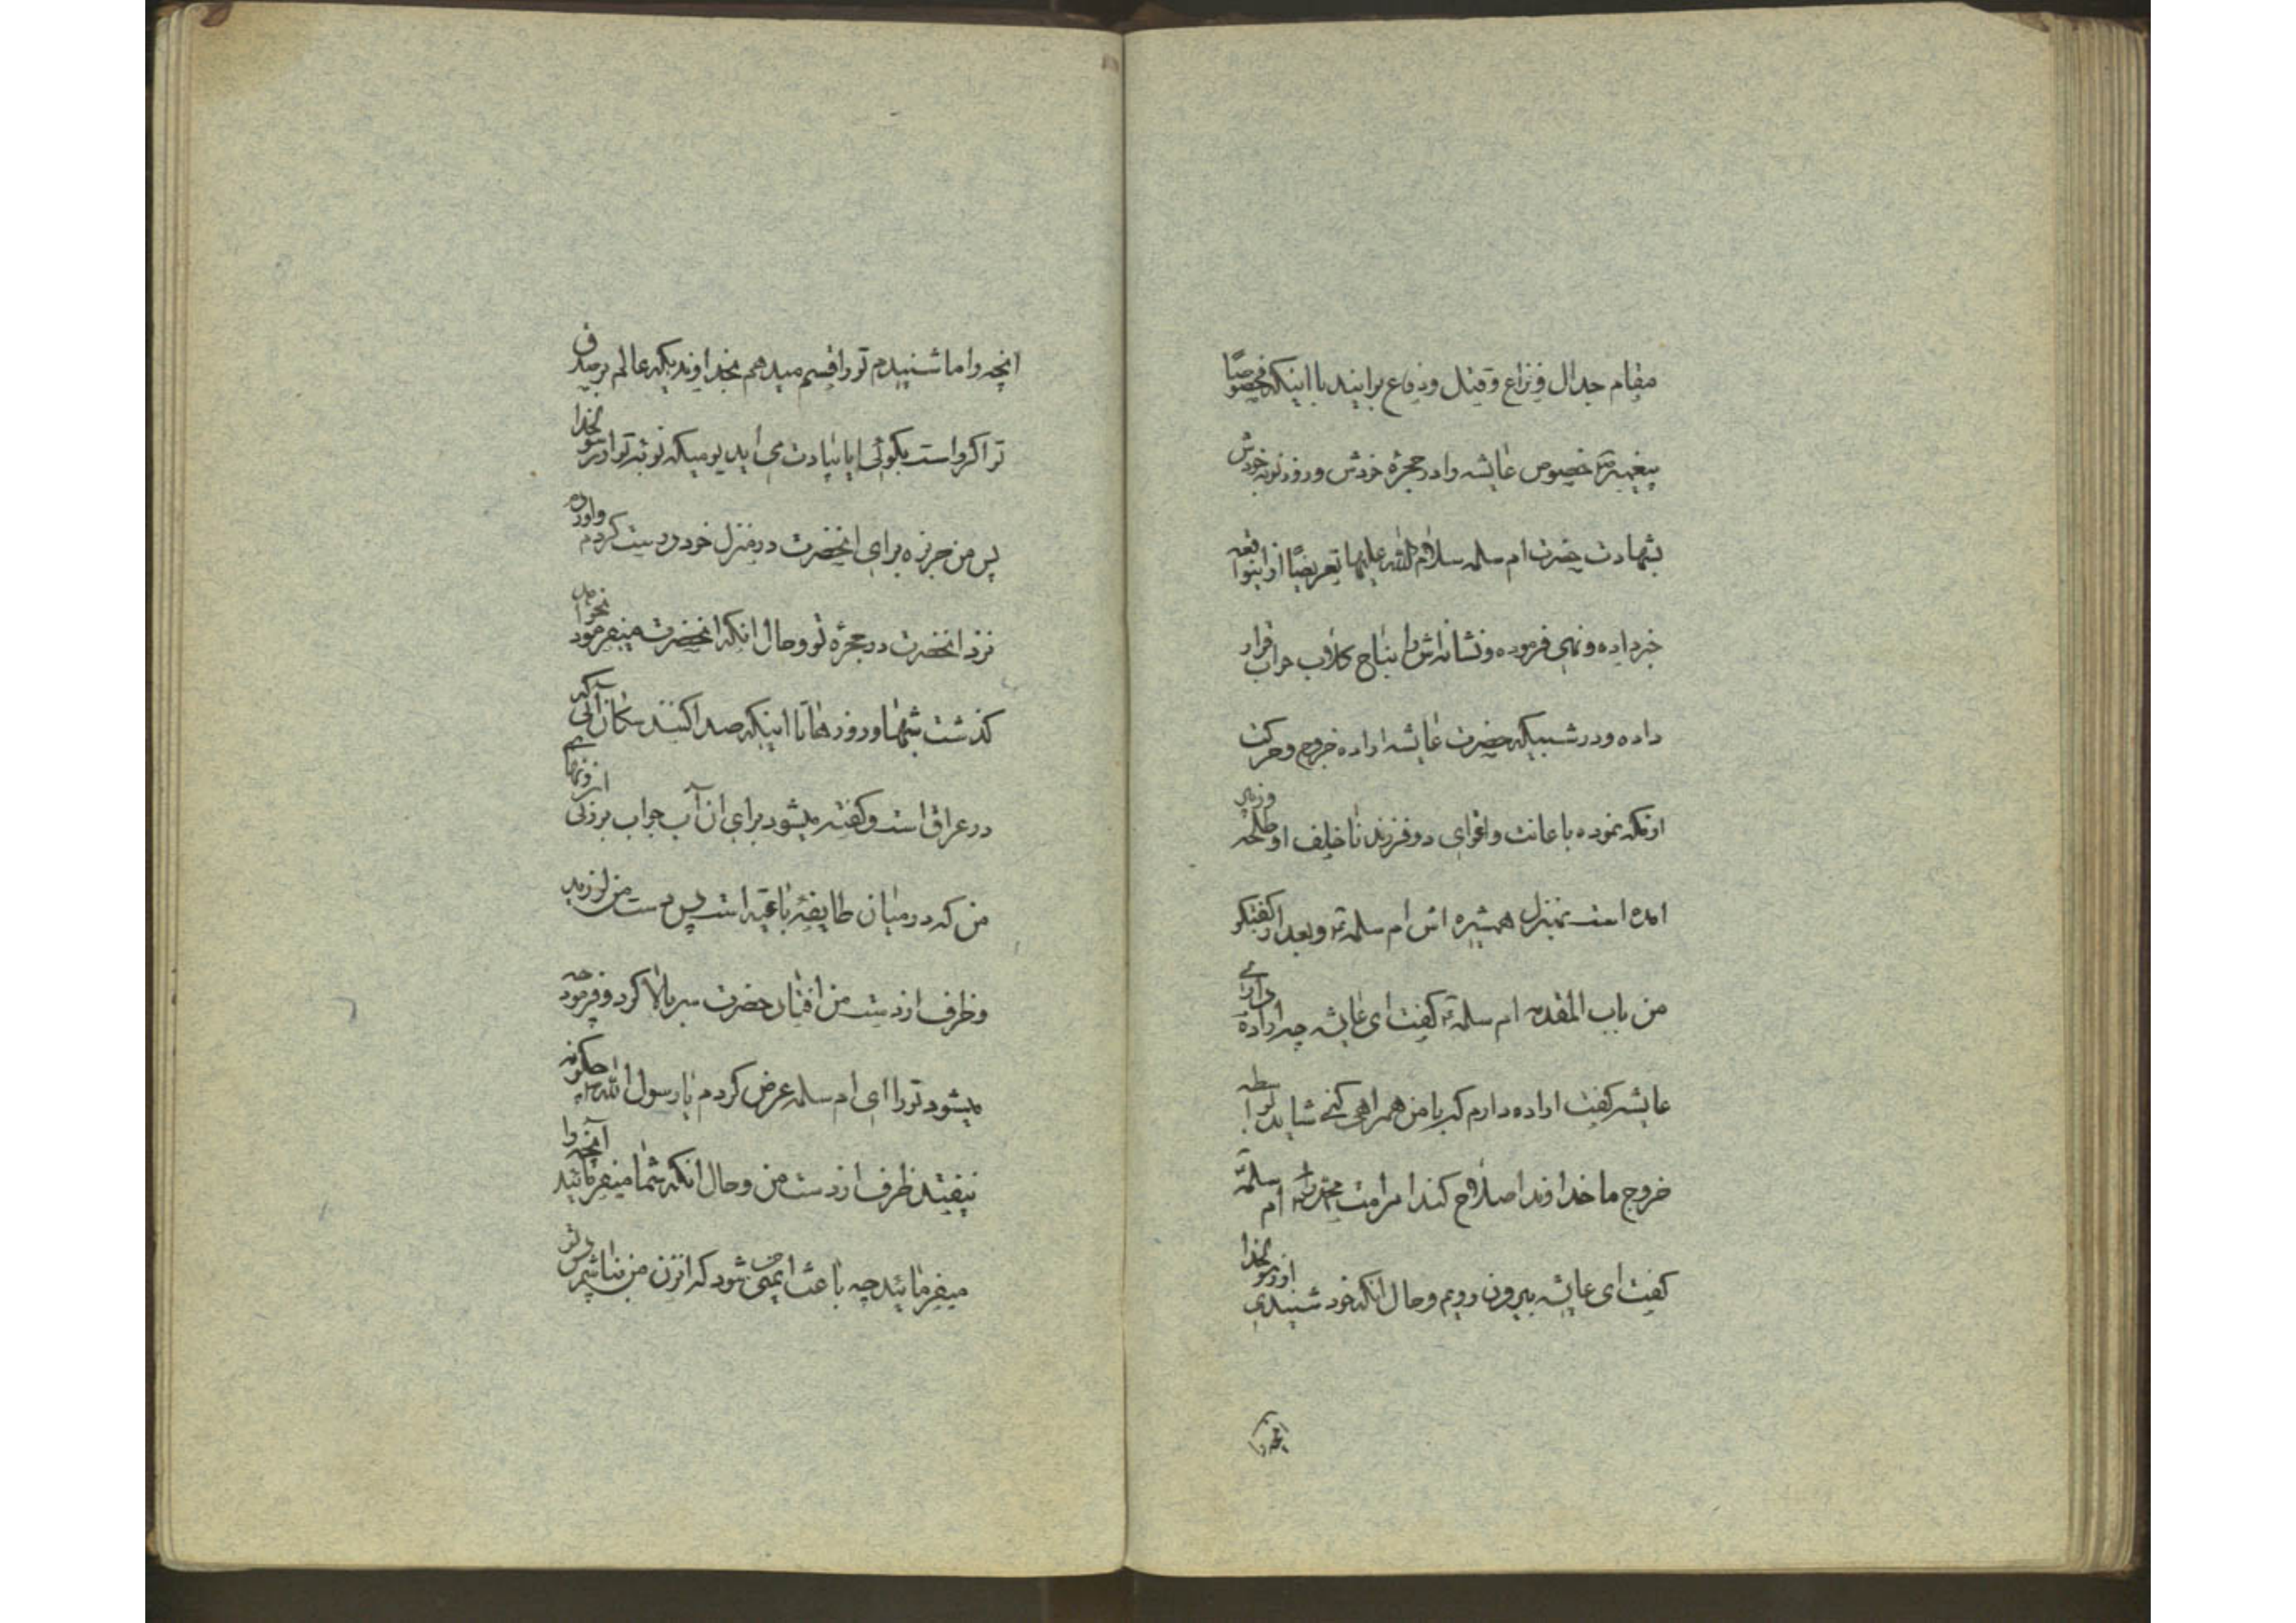 مقام جدال و نزاع و قتل و دفاع برایند با اینکه مخصوصًا
پیغمبر ص خصوص عایشه را در حجرهٔ خودش و روز نوبه خودش
بشهادت حضرت ام سلمه سلام الله علیها تعریضًا از اینواقعه
خبر داده و نهی فرموده و نشانه‌اش را بنباح کلاب حواب قرار
داده و در شبیکه حضرت عایشه اراده خروج و حرکت
از مکه نموده با عانت و اغوای دو فرزند ناخلف او طلحه و زبیر
امده است بمنزل همشیره اش ام سلمه و بعد از گفتگو
من باب المقدمه ام سلمه گفت ای عایشه چه ارادهٔ داری
عایشه گفت اراده دارم که با من همراهی کنی شاید بواسطه
خروج ما خداوند اصلاح کند امر امت محمد را ام سلمه
گفت ای عایشه بیرون رویم و حال انکه خود شنیدی از رسولخدا
انچه را
انچه را ما شنیدم تو را قسم میدهم بخداوندیکه عالم بر صدق
تو اگر راست بگوئی ایا بیادت می اید یومیکه نوبهٔ تو از رسولخدا
پس من حریره برای انحضرت در منزل خود درست کردم و اوردم
نزد انحضرت در حجرهٔ تو و حال انکه انحضرت میفرمود نخواهد
گذشت شبها و روزها تا اینکه صدا کنند سکان آبی که
در عراق است و گفته میشود برای ان آب حواب بر زنی از زنهای
من که در میان طایفهٔ باغیه است پس دست من لرزید
و ظرف از دست من افتاد حضرت سر بالا کرد و فرمود چه
میشود تو را ای ام سلمه عرض کردم یا رسول الله چگونه
نیفتد ظرف از دست من و حال انکه شما میفرمائید آنچه را
میفرمائید چه باعث ایمنی من شود که انزن من نباشم پس تو